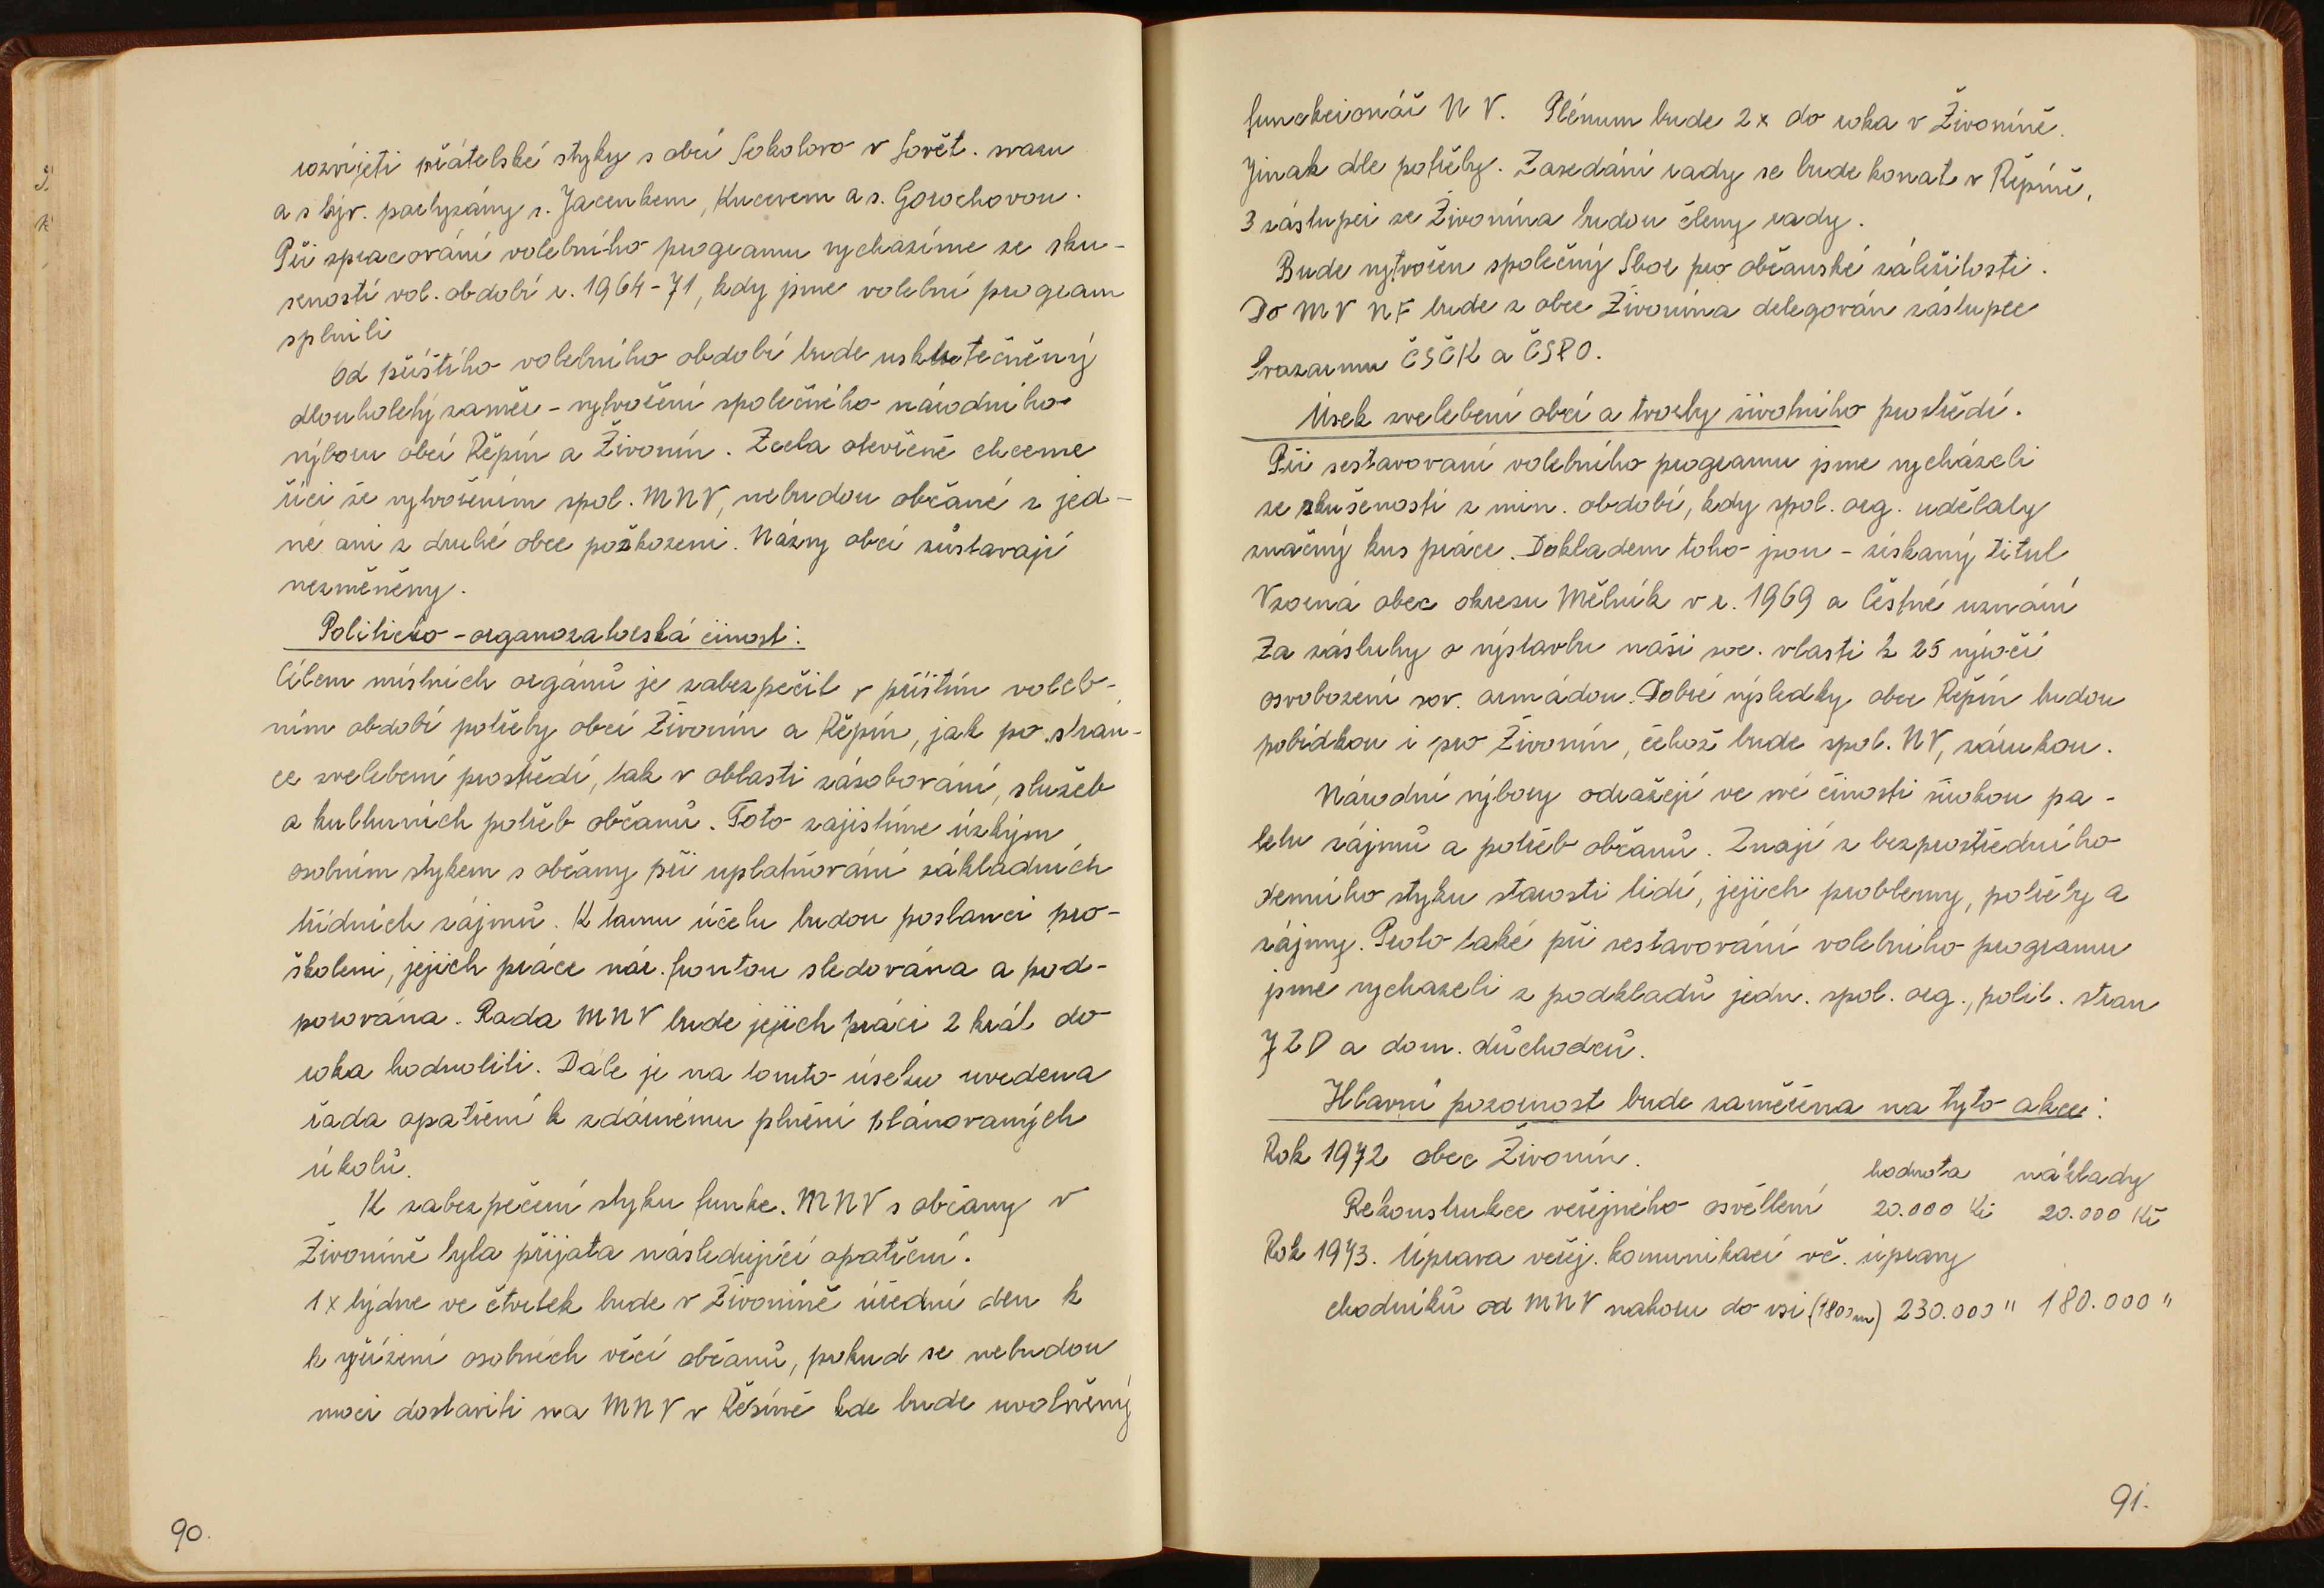 rozvíjeti přátelské styky s obcí Sokolovo v Sovět. svazu
a s býv. partyzány s. Jacenkem, Kucevem a s. Gorochovou.
Při zpracování volebního programu vycházíme ze sku-
šeností vol. období r. 1964-71, kdy jsme volební program
splnili
Od příštího volebního období bude uskutečněný
dlouholetý záměr - vytvoření společného národního
výboru obcí Řepín a Živonín. Zcela otevřeně chceme
říci že vytvořením spol. MNV, nebudou občané z jed-
né ani z druhé obce poškozeni. Názvy obcí zůstavají
nezměněny.
Politicko-organozatorská činost:
Cílem místních orgánů je zabezpečit v příštím voleb-
ním období potřeby obcí Živonín a Řepín, jak po strán-
ce zvelebení prostředí, tak v oblasti zásobování, služeb
a kulturních potřeb občanů. Toto zajistíme úzkým
osobním stykem s občany při uplatňování základních
třídních zájmů. K tamu účelu budou poslanci pro-
školeni, jejich práce nár. frontou sledována a pod-
porována. Rada MNV bude jejich práci 2 krát do
roka hodnotiti. Dále je na tomto úseku uvedena
řada opatření k zdárnému plnění plánovaných
úkolů.
K zabezpečení styku funkc. MNV s občany v
Živoníně byla přijata následující opatření.
1x týdne ve čtvrtek bude v Živoníně úřední den k
k vyřízení osobních věcí občanů, pokud se nebudou
moci dostaviti na MNV v Řepíně kde bude uvolněný
90.
funckcionář NV. Plénum bude 2x do roka v Živoníně.
Jinak dle potřeby. Zasedání rady se bude konat v Řepíně,
3 zástupci ze Živonína budou členy rady.
Bude vytvořen společný Sbor pro občanské záležitosti.
Do MV NF bude z obce Živonína delegován zástupce
Svazarmu ČSČK a ČSPO.
Úsek zvelebení obcí a tvorby životního prostředí.
Při sestavovaní volebního programu jsme vycházeli
ze zkušeností z min. období, kdy spol. org. udělaly
značný kus práce. Dokladem toho jsou - získaný titul
Vzorná obec okresu Mělník v r. 1969 a čestné uznání
Za zásluhy o výstavbu naší soc. vlasti k 25 výročí
osvobození sov. armádou. Dobré výsledky obce Řepín budou
pobídkou i pro Živonín, čehož bude spol. NV, zárukou.
Národní výbory odrážejí ve své činosti širokou pa-
letu zájmů a potřeb občanů. Znají z bezprostředního
denního styku starosti lidí, jejich problemy, potřeby a
zájmy. Proto také při sestavování volebního programu
jsme vychazeli z podkladů jedn. spol. org., polit. stran
JZD a dom. důchodců.
Hlavní pozornost bude zaměřena na tyto akce:
Rok 1972 obec Živonín.
hodnota náklady
Rekonstrukce veřejného osvětlení 20.000 Kč 20.000 Kč
Rok 1973. Úprava veřej. komunikací vč. úpravy
chodníků od MNV nahoru do vsi (1800m) 230.000 " 180.000 "
91.